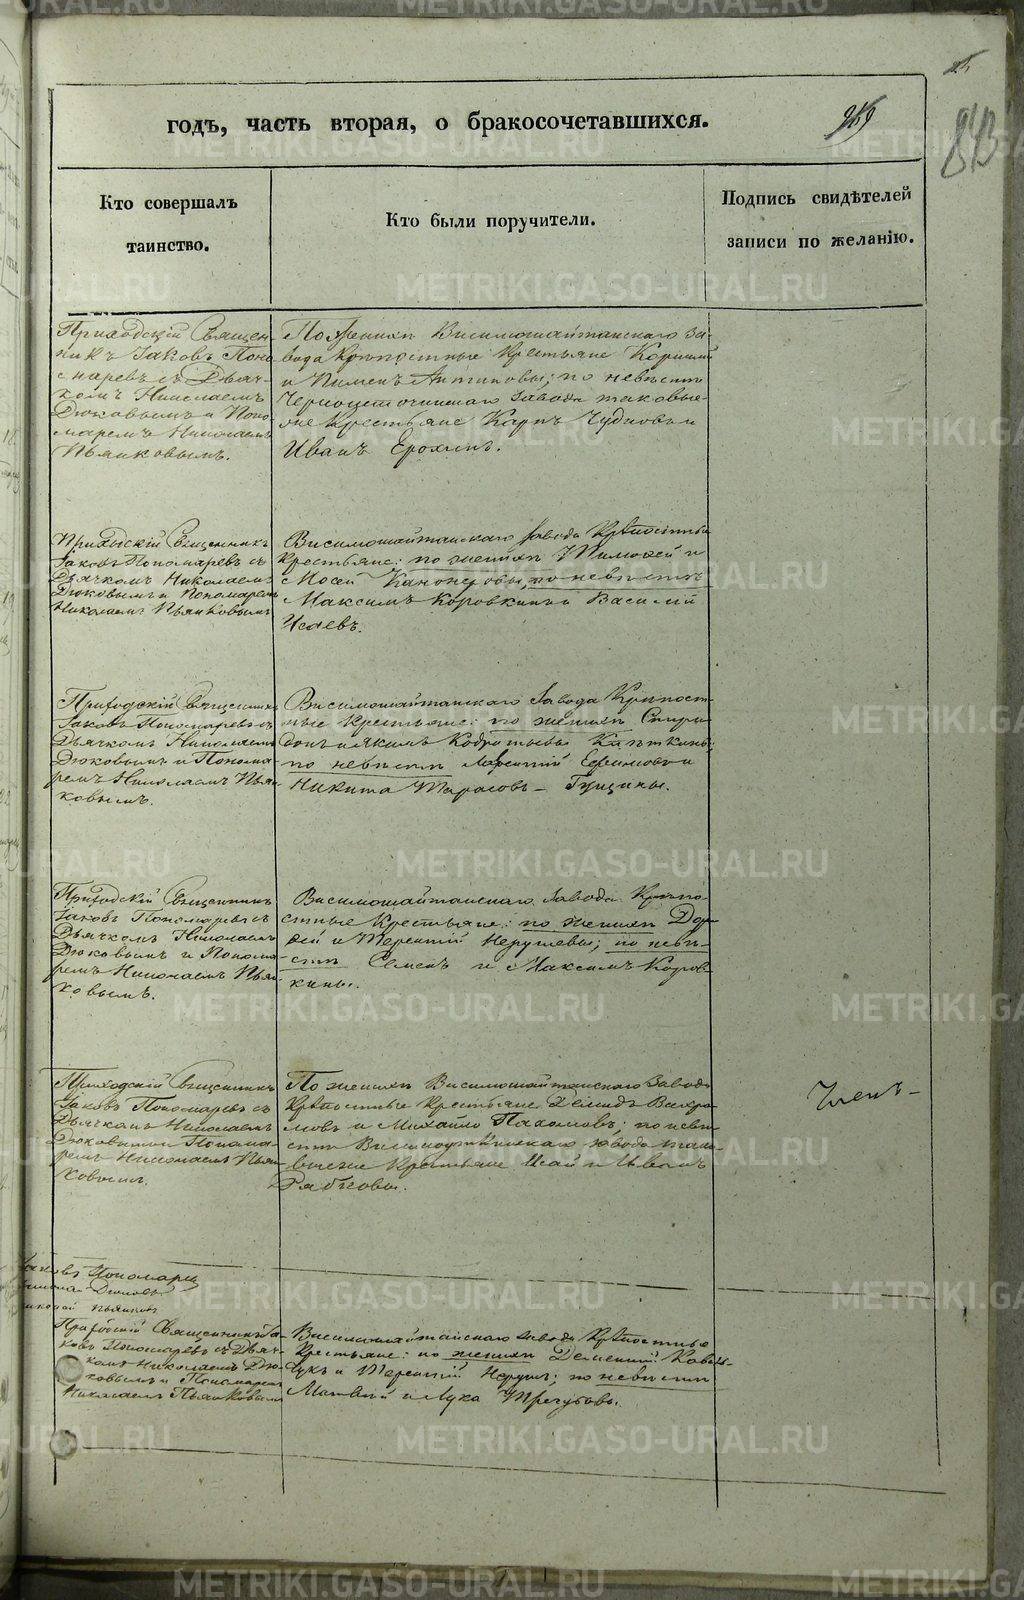 годъ, часть вторая, о бракосочетавшихся.
843
Кто совершалъ
таинство.
Кто были поручители.
Подпись свидѣтелей
записи по желанію.
Приходскій Священ-
никъ Іаковъ Поно
маревъ съ Дьяч-
комъ Николаемъ
Дюковымъ и Поно-
маремъ Николаемъ
Пьянковымъ.
По женихѣ Висимошайтанскаго За-
вода Крѣпостные Крестьяне
и Пименъ Антиповы; по невѣстѣ
Черноисточинскаго Завода таковые-
же Крестьяне Карпъ Чудновъ и
Иванъ Ерохинъ.
Приходскій Священникъ
Іаковъ Пономаревъ съ
Дьячкомъ Николаемъ
Дюковымъ и Пономаремъ
Николаемъ Пьянковымъ
Висимошайтанскаго Завода Крѣпостные
Крестьяне: по женихѣ Тимофей и
Мосей Канонеровы, по невѣстѣ
Максимъ Коровкинъ и Василій
Исаевъ.
Приходскій Священникъ
Іаковъ Пономаревъ съ
Дьячкомъ Николаемъ
Дюковымъ и Понома-
ремъ Николаемъ Пьян-
ковымъ.
Висимошайтанскаго Завода Крѣпост-
ные Крестьяне: по женихѣ Спири
донъ и Якимъ
по невѣстѣ Ефимовъ и
Никита Тарасовъ – Гущины.
Приходскій Священникъ
Іаковъ Пономаревъ съ
Дьячкомъ Николаемъ
Дюковымъ и Понома-
ремъ Николаемъ Пьян-
ковымъ.
Висимошайтанскаго Завода Крѣпо-
стные Крестьяне: по женихѣ
и Терентій Нерушевы; по невѣ-
стѣ Семенъ и Максимъ Коров-
кины.
Приходскій Священникъ
Іаковъ Пономаревъ съ
Дьячкомъ Николаемъ
Дюковымъ и Понома-
ремъ Николаемъ Пьян-
ковымъ.
По женихѣ Висимошайтанскаго Завода
Крѣпостные Крестьяне Демидъ Вахро-
мовъ и Михайло Пахомовъ; по невѣ-
стѣ Завода тако-
выеже Крестьяне Исай и Иванъ
Рябковы.
Членъ
Іаковъ Пономарев
Дюковъ
Николай Пьянковъ
Приходскій Священникъ Іа-
ковъ Пономаревъ съ Дьяч-
комъ Николаемъ Дю-
ковымъ и Пономаремъ
Николаемъ Пьянковымъ
Висимошайтанскаго Завода Крѣпостные
Крестьяне: по женихѣ Дементій
и Терентій по невѣстѣ
Матвѣй и Лука Трегубовы.
METRIKI.GASO-URAL.RU